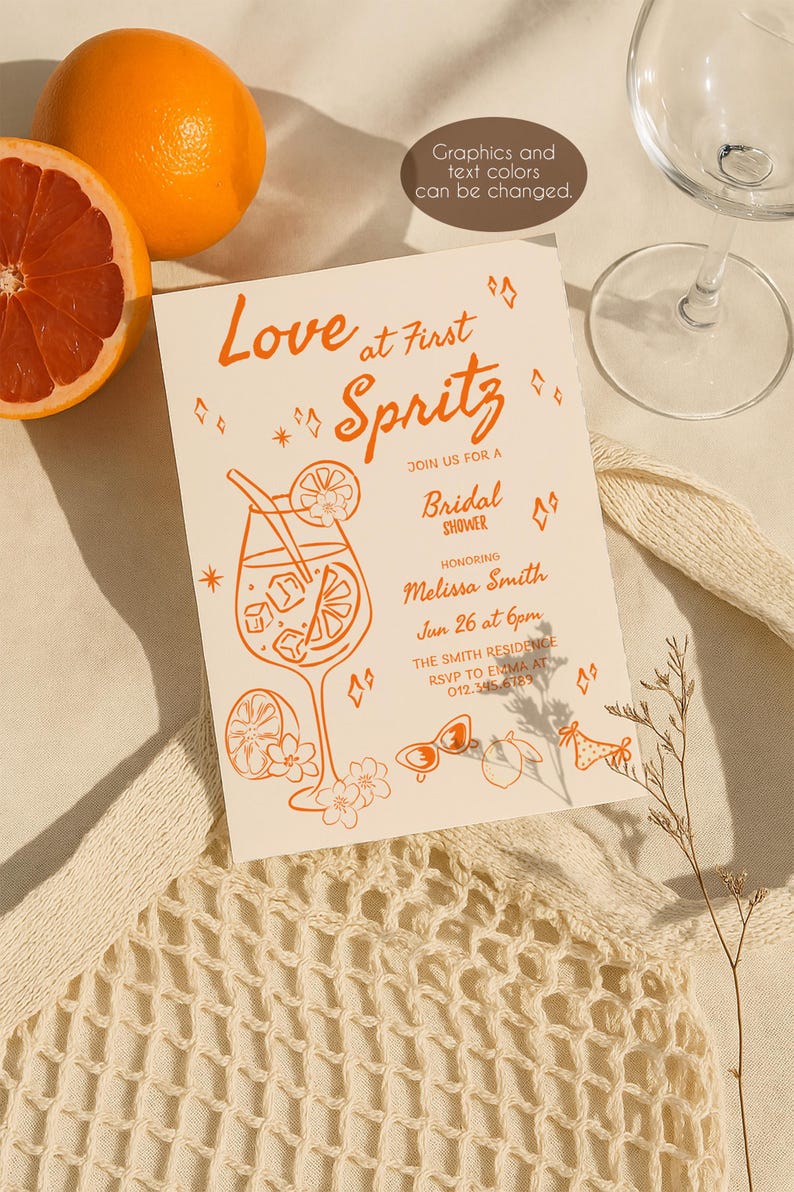 Graphics and
text colors
can be changed.
Love at First
Spritz
JOIN US FOR A
Bridal
SHOWER
HONORING
Melissa Smith
Jun 26 at 6pm
THE SMITH RESIDENCE
RSVP TO EMMA AT
012.345.6789